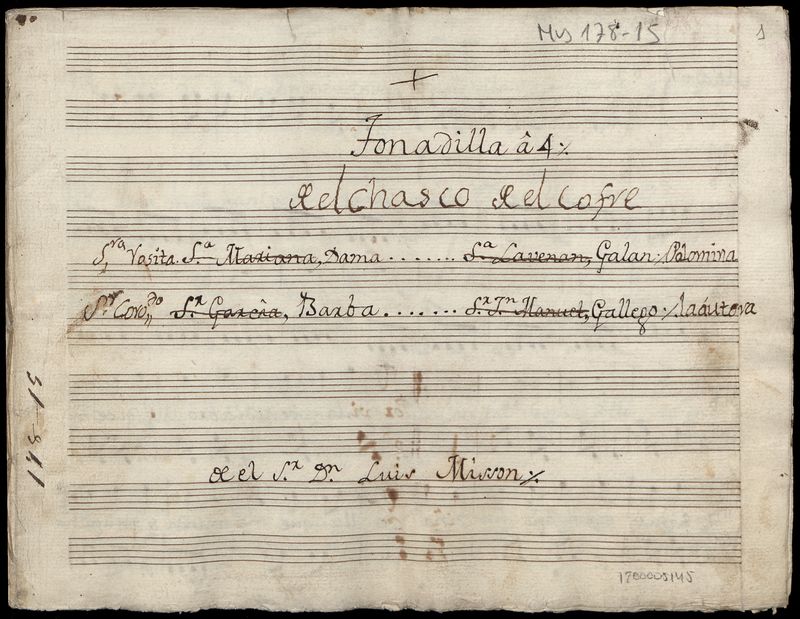 Mus 178-15
1
+
Tonadilla â 4 ·/.
del Chasco del Cofre
S.ra Vosita. S.ª Mariana, Dama ........ S.ª Lavenan, Galan ·/. Palomina
S.r Coro.do S.r Garcia, Barba ........ S.r J.n Manuel, Gallego ·/. la autora
de el S.r D.n Luis Misson ·/.
1200005145